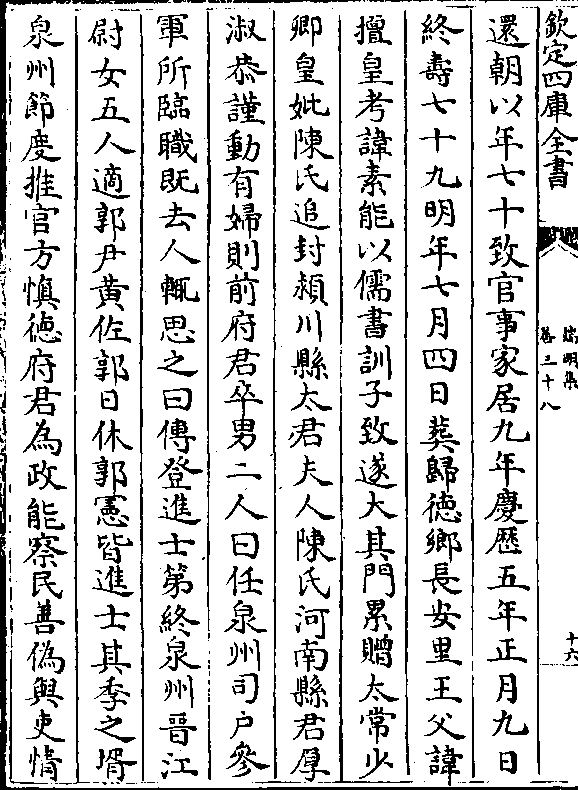 欽定四庫全書
端明集
卷三十八
十六
還朝以年七十致官事家居九年慶歷五年正月九日
終壽七十九明年七月四日葬歸德鄉長安里王父諱
擅皇考諱素能以儒書訓子致遂大其門累贈太常少
卿皇妣陳氏追封潁川縣太君夫人陳氏河南縣君厚
淑恭謹動有婦則前府君卒男二人曰任泉州司户參
軍所臨職既去人輒思之曰傳登進士第終泉州晉江
尉女五人適郭尹黄佐郭日休郭憲皆進士其季之壻
泉州節度推官方慎德府君為政能察民善偽與吏情